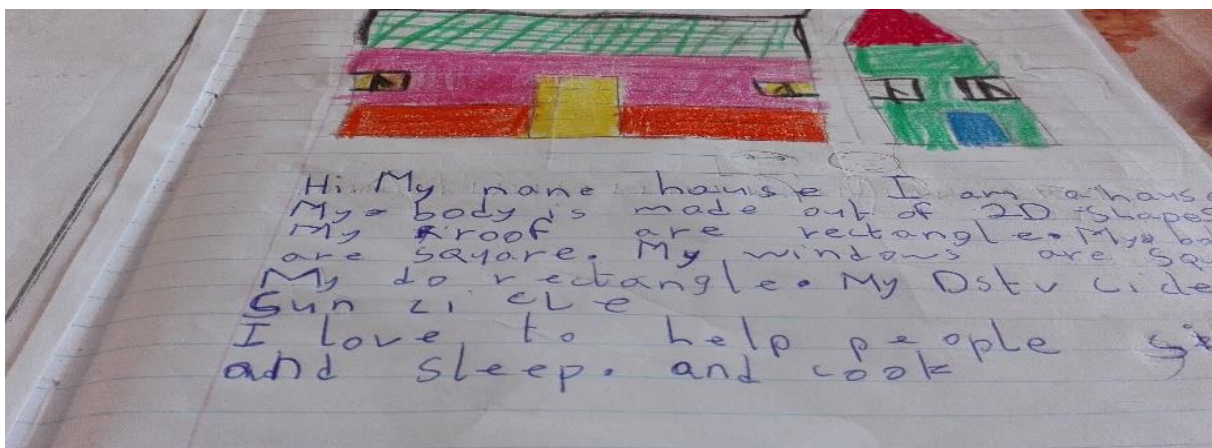 Hi My name hause I am a haus
My body is made out of 2D shapes
My roof are rectangle. My bo
are sqyare. My windows are squ
My do rectangle. My Dstv cide
Sun ci cle
I love to help people si
and sleep. and cook